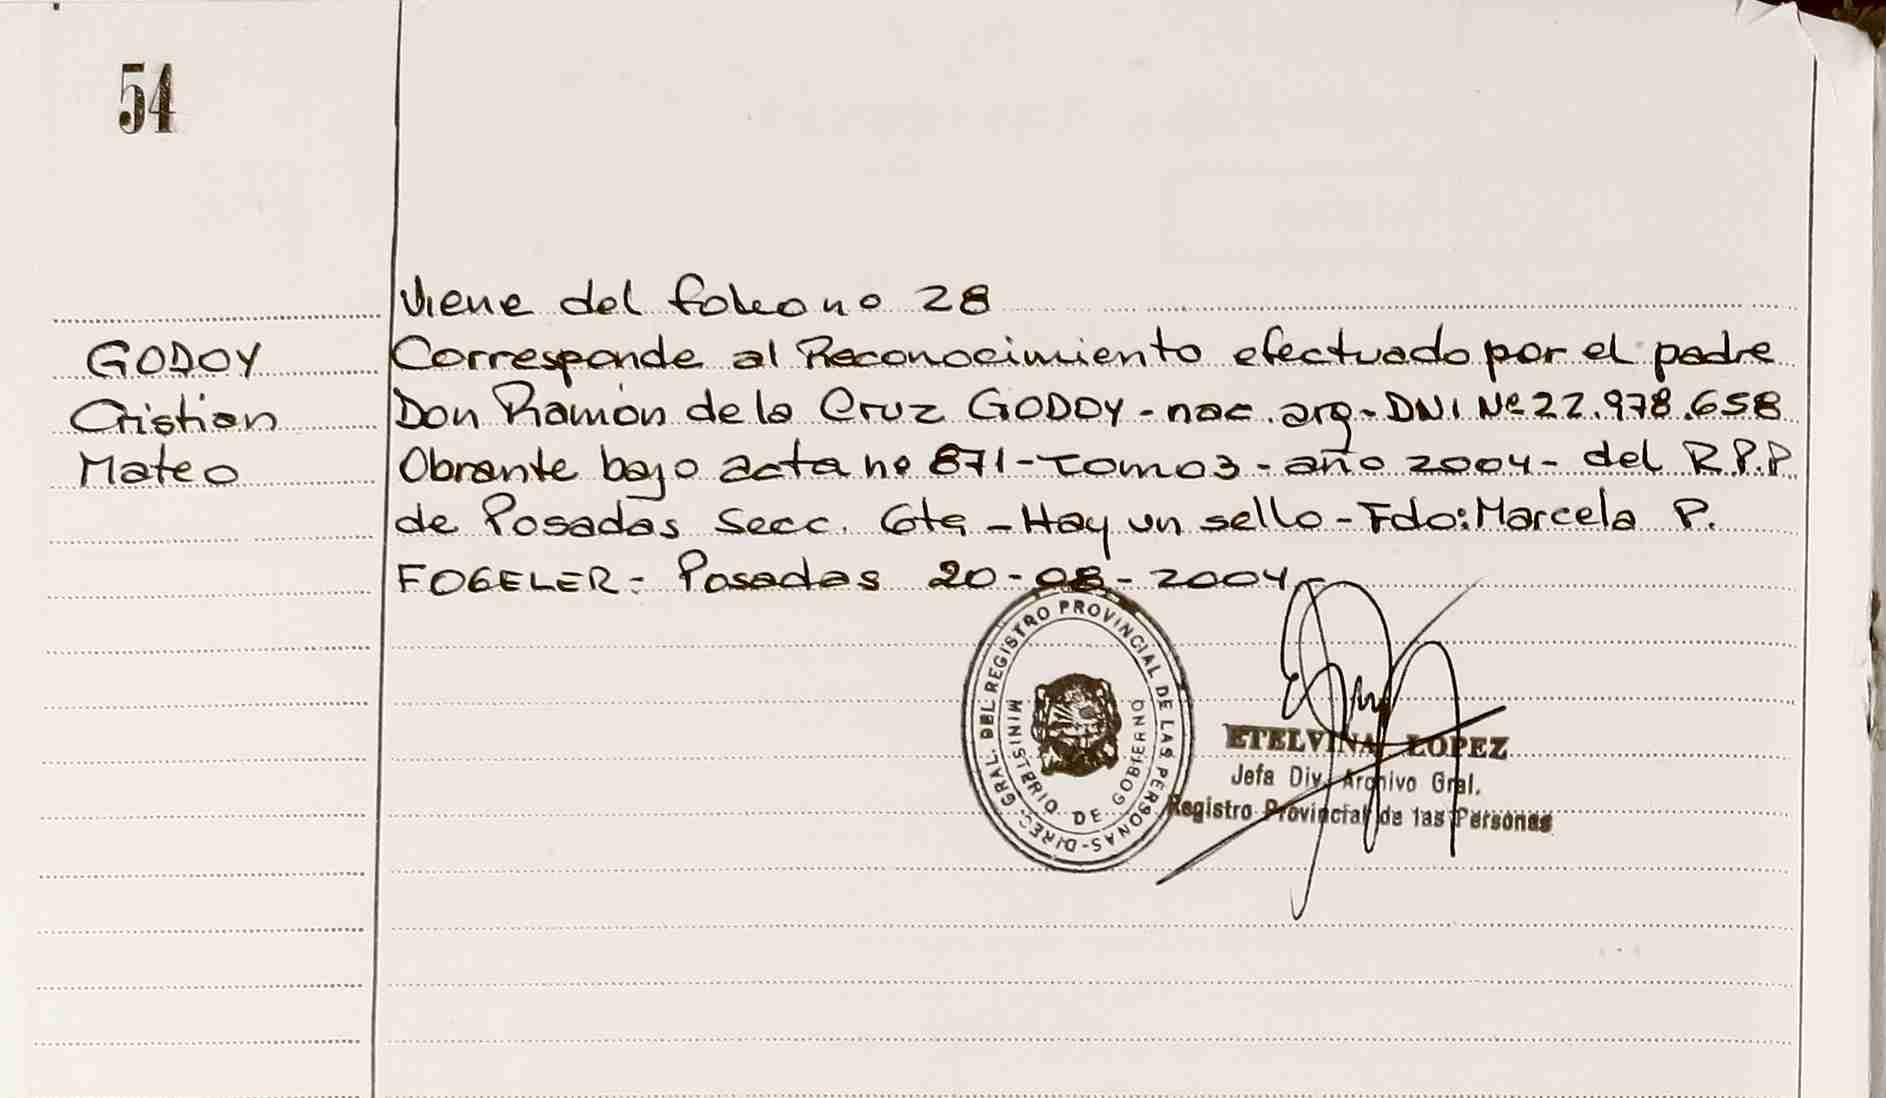 54
Viene del folio no 28
GODOY
Corresponde al Reconocimiento efectuado por el padre
Cristian
Don Ramón de la Cruz GODOY - nac. arg - DNI Nº 22.978.658
Mateo
Obrante bajo acta no 871 - Tomo 3 - año 2004 - del R.P.P
de Posadas Secc. 6ta - Hay un sello - Fdo: Marcela P.
FOGELER - Posadas 20-08-2004
DIREC. GRAL. DEL REGISTRO PROVINCIAL DE LAS PERSONAS
MINISTERIO DE GOBIERNO
ETELVINA LOPEZ
Jefa Div. Archivo Gral.
Registro Provincial de las Personas